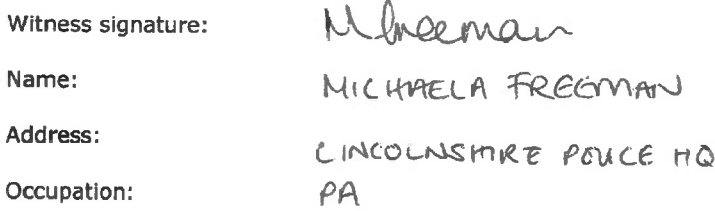 Witness signature: M Freeman
Name: MICHAELA FREEMAN
Address: LINCOLNSHIRE POLICE HQ
Occupation: PA